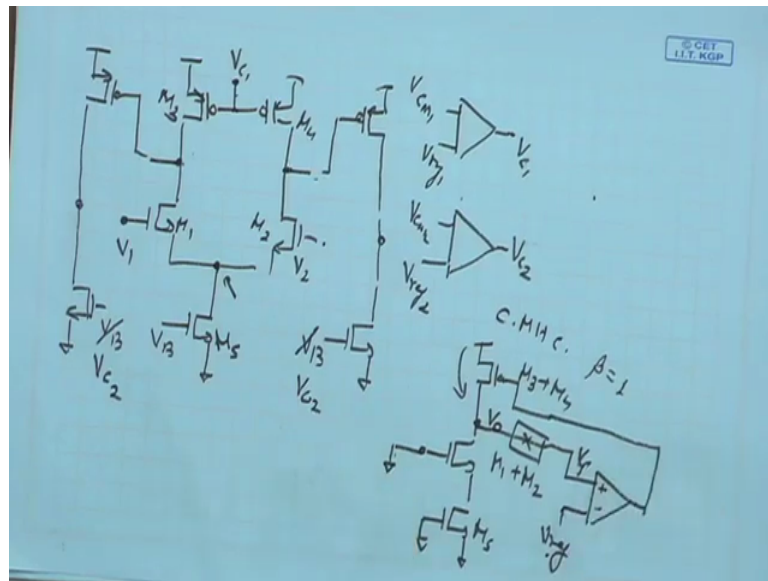 © CET
I.I.T. KGP
Vc1
M3
M4
Vcm1
Vref1
Vc1
M1
M2
V1
V2
Vcm2
Vref2
Vc2
VB
Vc2
VB
M5
VB
Vc2
C.M.H.C.
β=1
M3+M4
Vo
M1+M2
Vf
+
-
M5
Vref